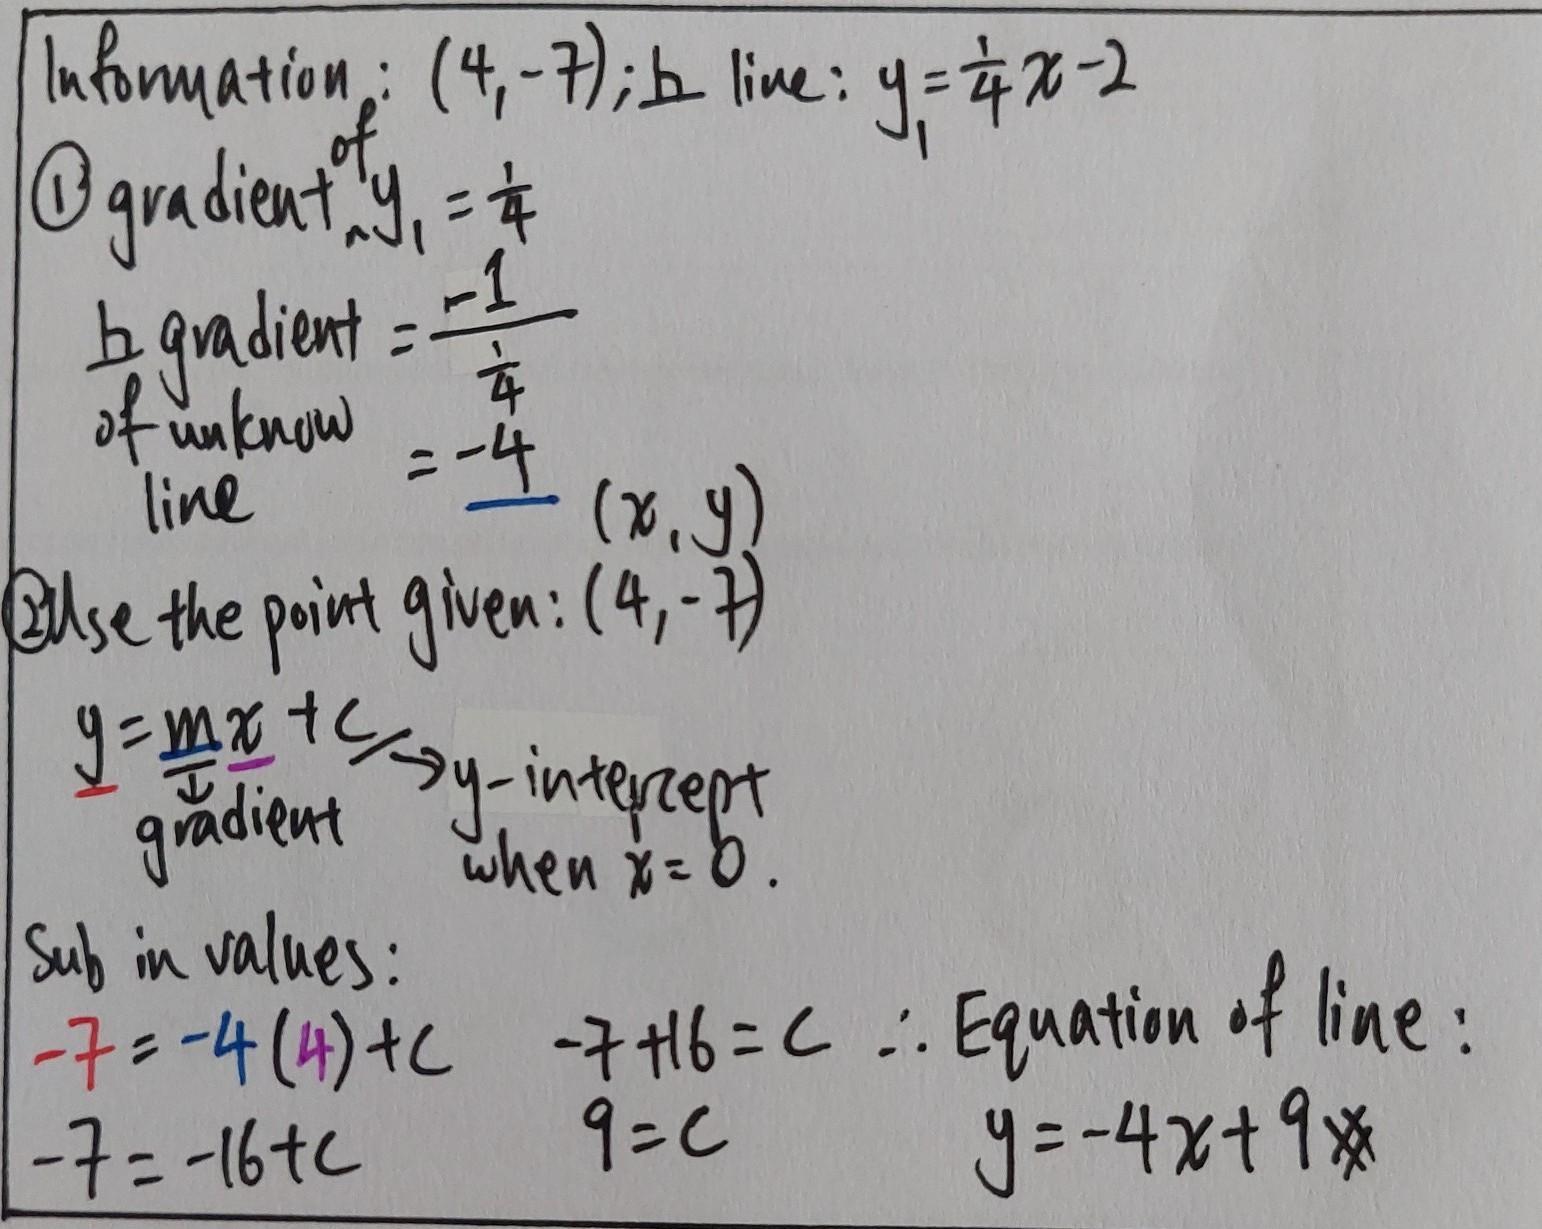 Information: (4,-7); ⊥ line: y₁ = 1/4 x - 2
① gradient of y₁ = 1/4
⊥ gradient of unknow line = -1 / (1/4)
= -4
(x, y)
② Use the point given: (4, -7)
y = mx + c → y-intercept when x = 0.
↓
gradient
Sub in values:
-7 = -4(4) + c
-7 = -16 + c
-7 + 16 = c
9 = c
∴ Equation of line:
y = -4x + 9